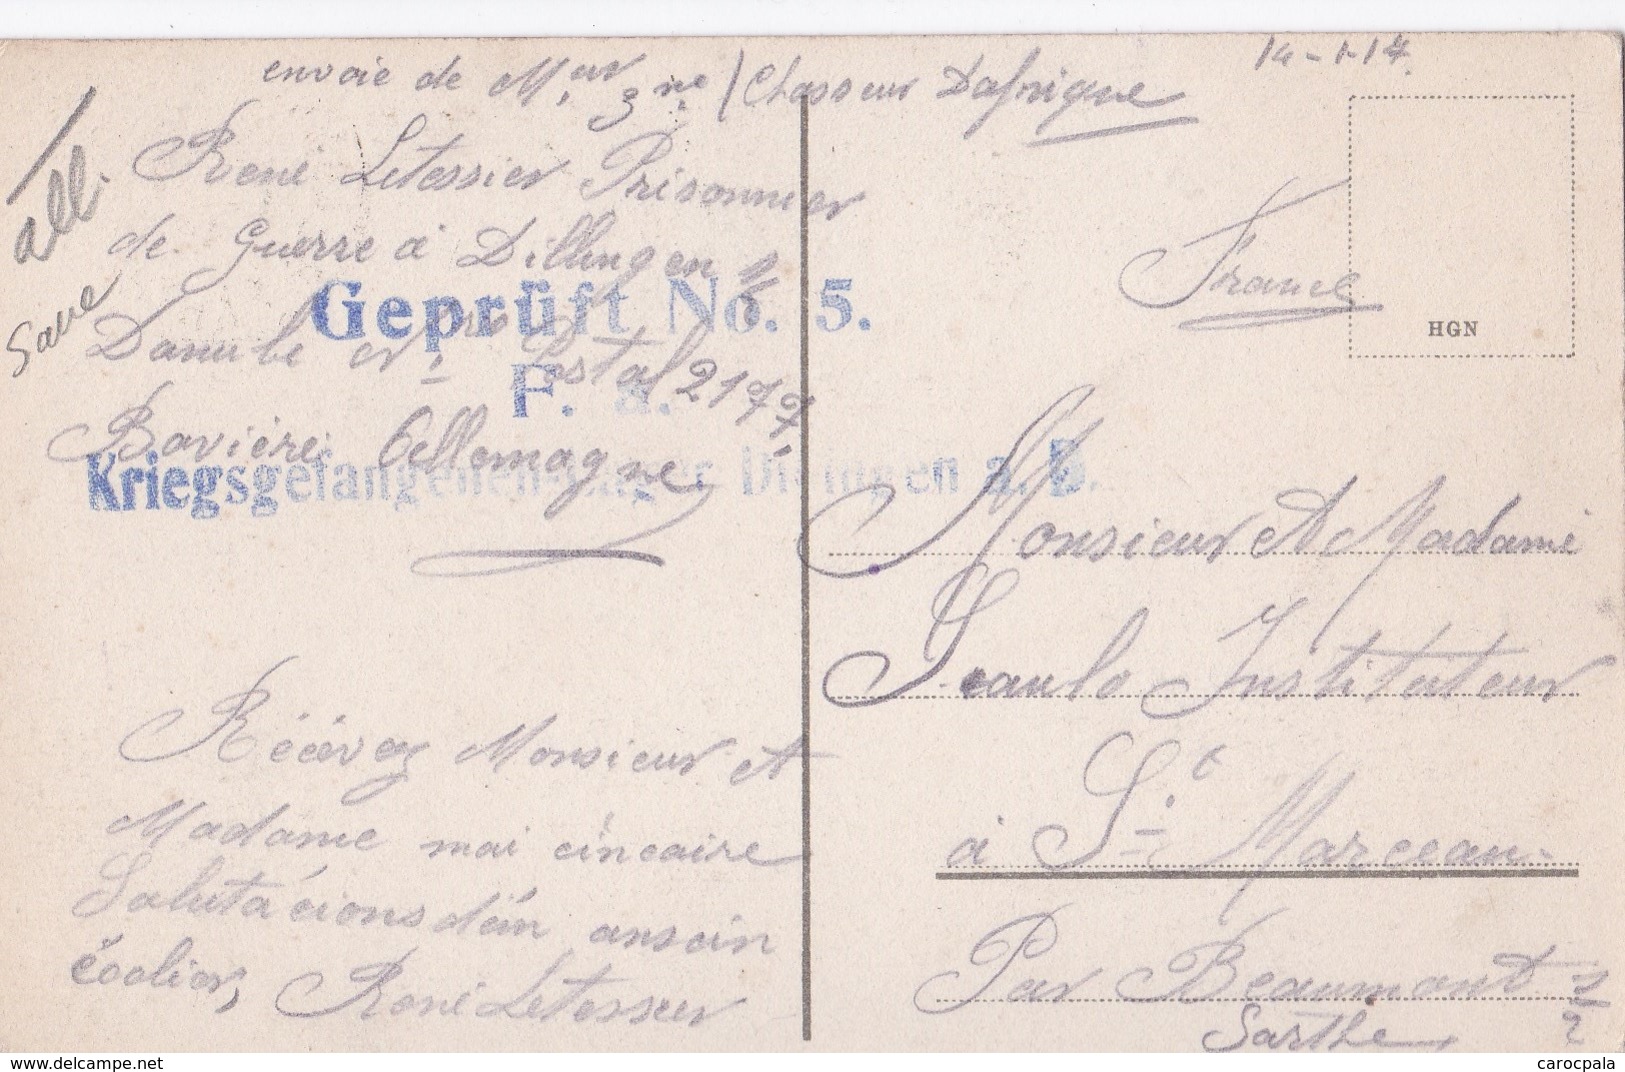 envoie de Mr eur 3 me / Chasseur Dafrique
14-1-17
all.
Save
René Letessier Prisonnier
de guerre à Dillingen s/
Danube er. Postal 2177
Bavière. Allemagne
Geprüft No. 5.
F. a.
Kriegsgefangenen-Lager Dillingen a. D.
France
HGN
Monsieur et Madame
Instituteur
à St Marceau
Par Beaumont s/
Sarthe
Récevez Monsieur et
Madame mai cincaire
Salutacions d'un ansein
écolier, René Letessier
carocpala